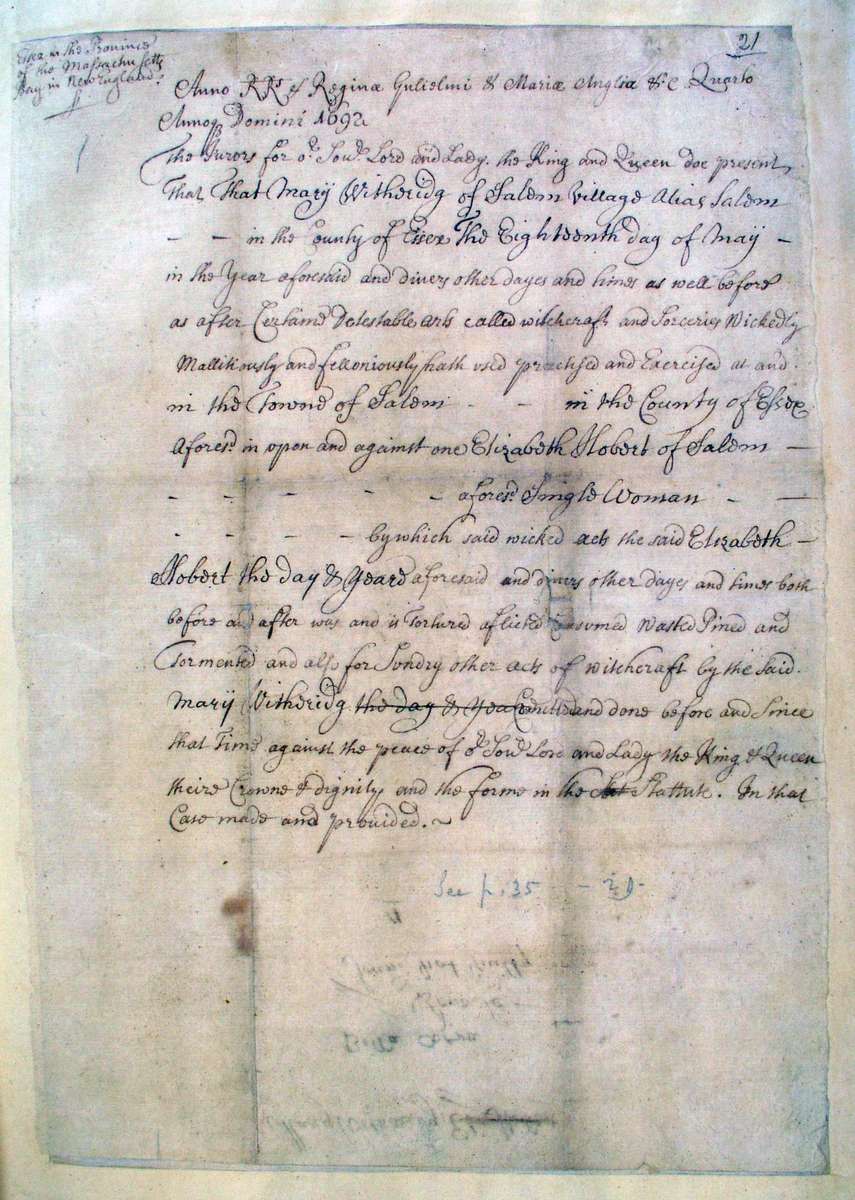 21
Essex in the Province
of the Massachusetts
Bay in New England
Anno RRs & Reginæ Gulielmi & Mariæ Angliæ &c Quarto
Annoq Domini 1692
The Jurors for or Sovr Lord and Lady the King and Queen doe present
That That Mary Witheridg of Salem Village Alias Salem
- - in the County of Essex The Eighteenth day of May -
in the Year aforesaid and divers other dayes and times as well before
as after Certaine Detestable arts called witchcraft and Sorceries Wickedly
Mallitiously and felloniously hath vsed practised and Exercised at and
in the Towne of Salem - - in the County of Essex
Aforesd in upon and against one Elizabeth Hobert of Salem -
- - - - - aforesd Single Woman - -
- - - - by which said wicked acts the said Elizabeth -
Hobert the day & Yeare aforesaid and divers other dayes and times both
before and after was and is Tortured aflicted Consumed Wasted Pined and
Tormented and also for Sundry other acts of witchcraft by the Said
Mary Witheridg the day & Year Comitted and done before and Since
that Time against the peace of or Sovr Lord and Lady the King & Queen
theire Crowne & dignity and the forme in the Stattute. In that
Case made and provided. ~
See p. 35